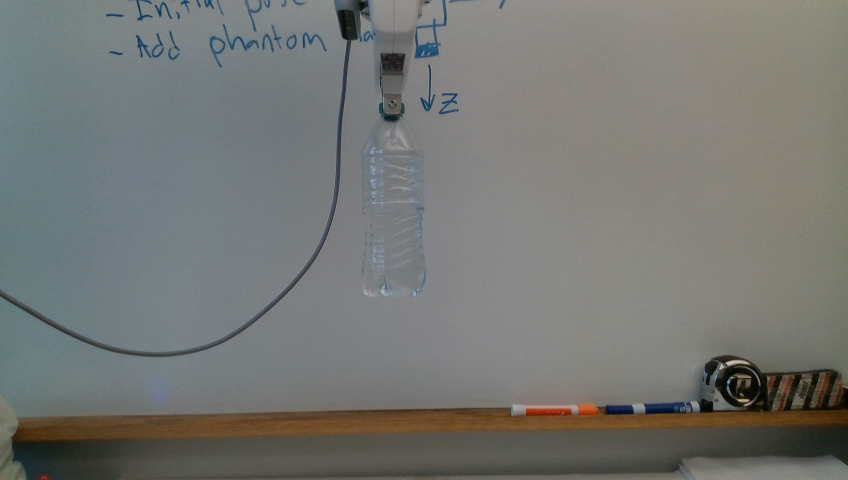 - Initial pose
- Add phantom
z